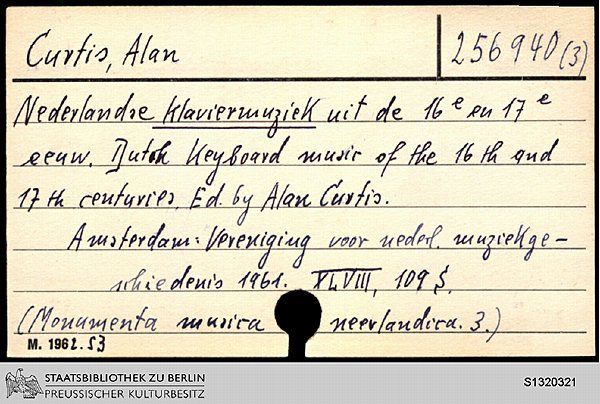 Curtis, Alan
256940(3)
Nederlandse Klaviermuziek uit de 16e en 17e
eeuw. Dutch Keyboard music of the 16th and
17th centuries. Ed. by Alan Curtis.
Amsterdam: Vereniging voor nederl. muziekge-
schiedenis 1961. XLVIII, 109 S.
(Monumenta musica neerlandica. 3.)
M. 1962.53
STAATSBIBLIOTHEK ZU BERLIN
PREUSSISCHER KULTURBESITZ
S1320321